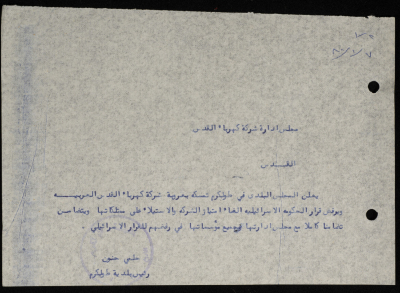 مجلس ادارة شركة كهرباء القدس
القدس
يعلن المجلس البلدي في طولكرم تمسكه بعروبة شركة كهرباء القدس العربية
ويرفض قرار الحكومة الاسرائيلية الغاء امتياز الشركة والاستيلاء على ممتلكاتها ويتضامن
تضامنا كاملا مع مجلس ادارتها و جميع مؤسساتها في رفضهم للقرار الاسرائيلي .
حلمي حنون
رئيس بلدية طولكرم